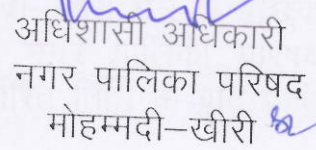 अधिशासी अधिकारी
नगर पालिका परिषद
मोहम्मदी–खीरी